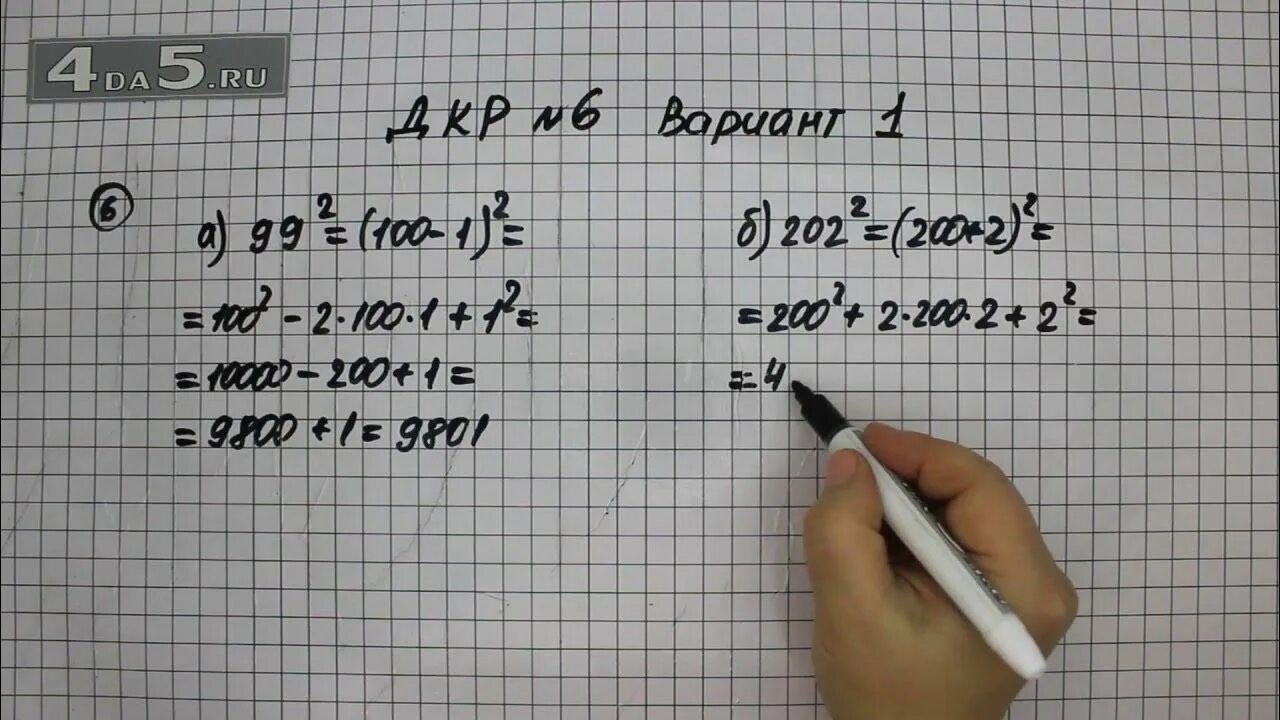 4DA5.RU
ДКР №6 Вариант 1
6
а) 99² = (100-1)² =
= 100² - 2·100·1 + 1² =
= 10000 - 200 + 1 =
= 9800 + 1 = 9801
б) 202² = (200+2)² =
= 200² + 2·200·2 + 2² =
= 4